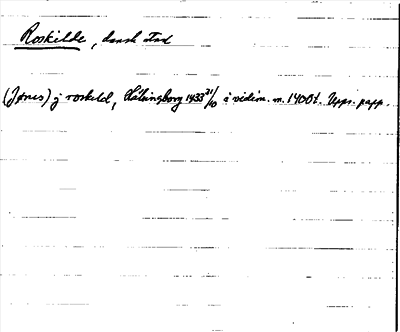 Roskilde, dansk stad
(Jønes) j roskild, Hälsingborg 1433 21/10 i vidim. m. 1400t. Uppr. papp.